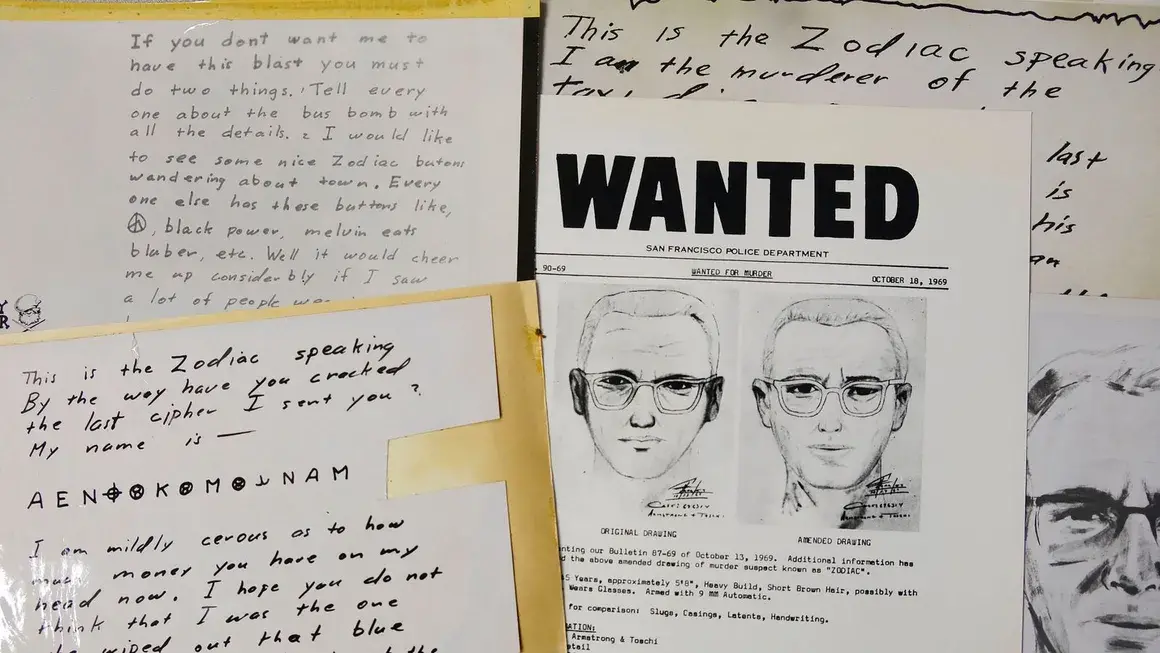 If you dont want me to
have this blast you must
do two things. 1 Tell every
one about the bus bomb with
all the details. 2 I would like
to see some nice Zodiac butons
wandering about town. Every
one else has these buttons like,
☮, black power, melvin eats
blaber, etc. Well it would cheer
me up considerbly if I saw
a lot of people
This is the Zodiac speaking
I am the murderer of the
last
is
his
WANTED
SAN FRANCISCO POLICE DEPARTMENT
90-69 WANTED FOR MURDER OCTOBER 18, 1969
ORIGINAL DRAWING AMENDED DRAWING
nting our Bulletin 87-69 of October 13, 1969. Additional information has
d the above amended drawing of murder suspect known as "ZODIAC".
5 Years, approximately 5'8", Heavy Build, Short Brown Hair, possibly with
Wears Glasses. Armed with 9 MM Automatic.
for comparison: Slugs, Casings, Latents, Handwriting.
ATION:
Armstrong & Toschi
etail
This is the Zodiac speaking
By the way have you cracked
the last cipher I sent you ?
My name is —
A E N ⌖ ⊗ K ⊗ M ⊗ ⅃ N A M
I am mildly cerous as to how
much money you have on my
head now. I hope you do not
think that I was the one
wiped out that blue